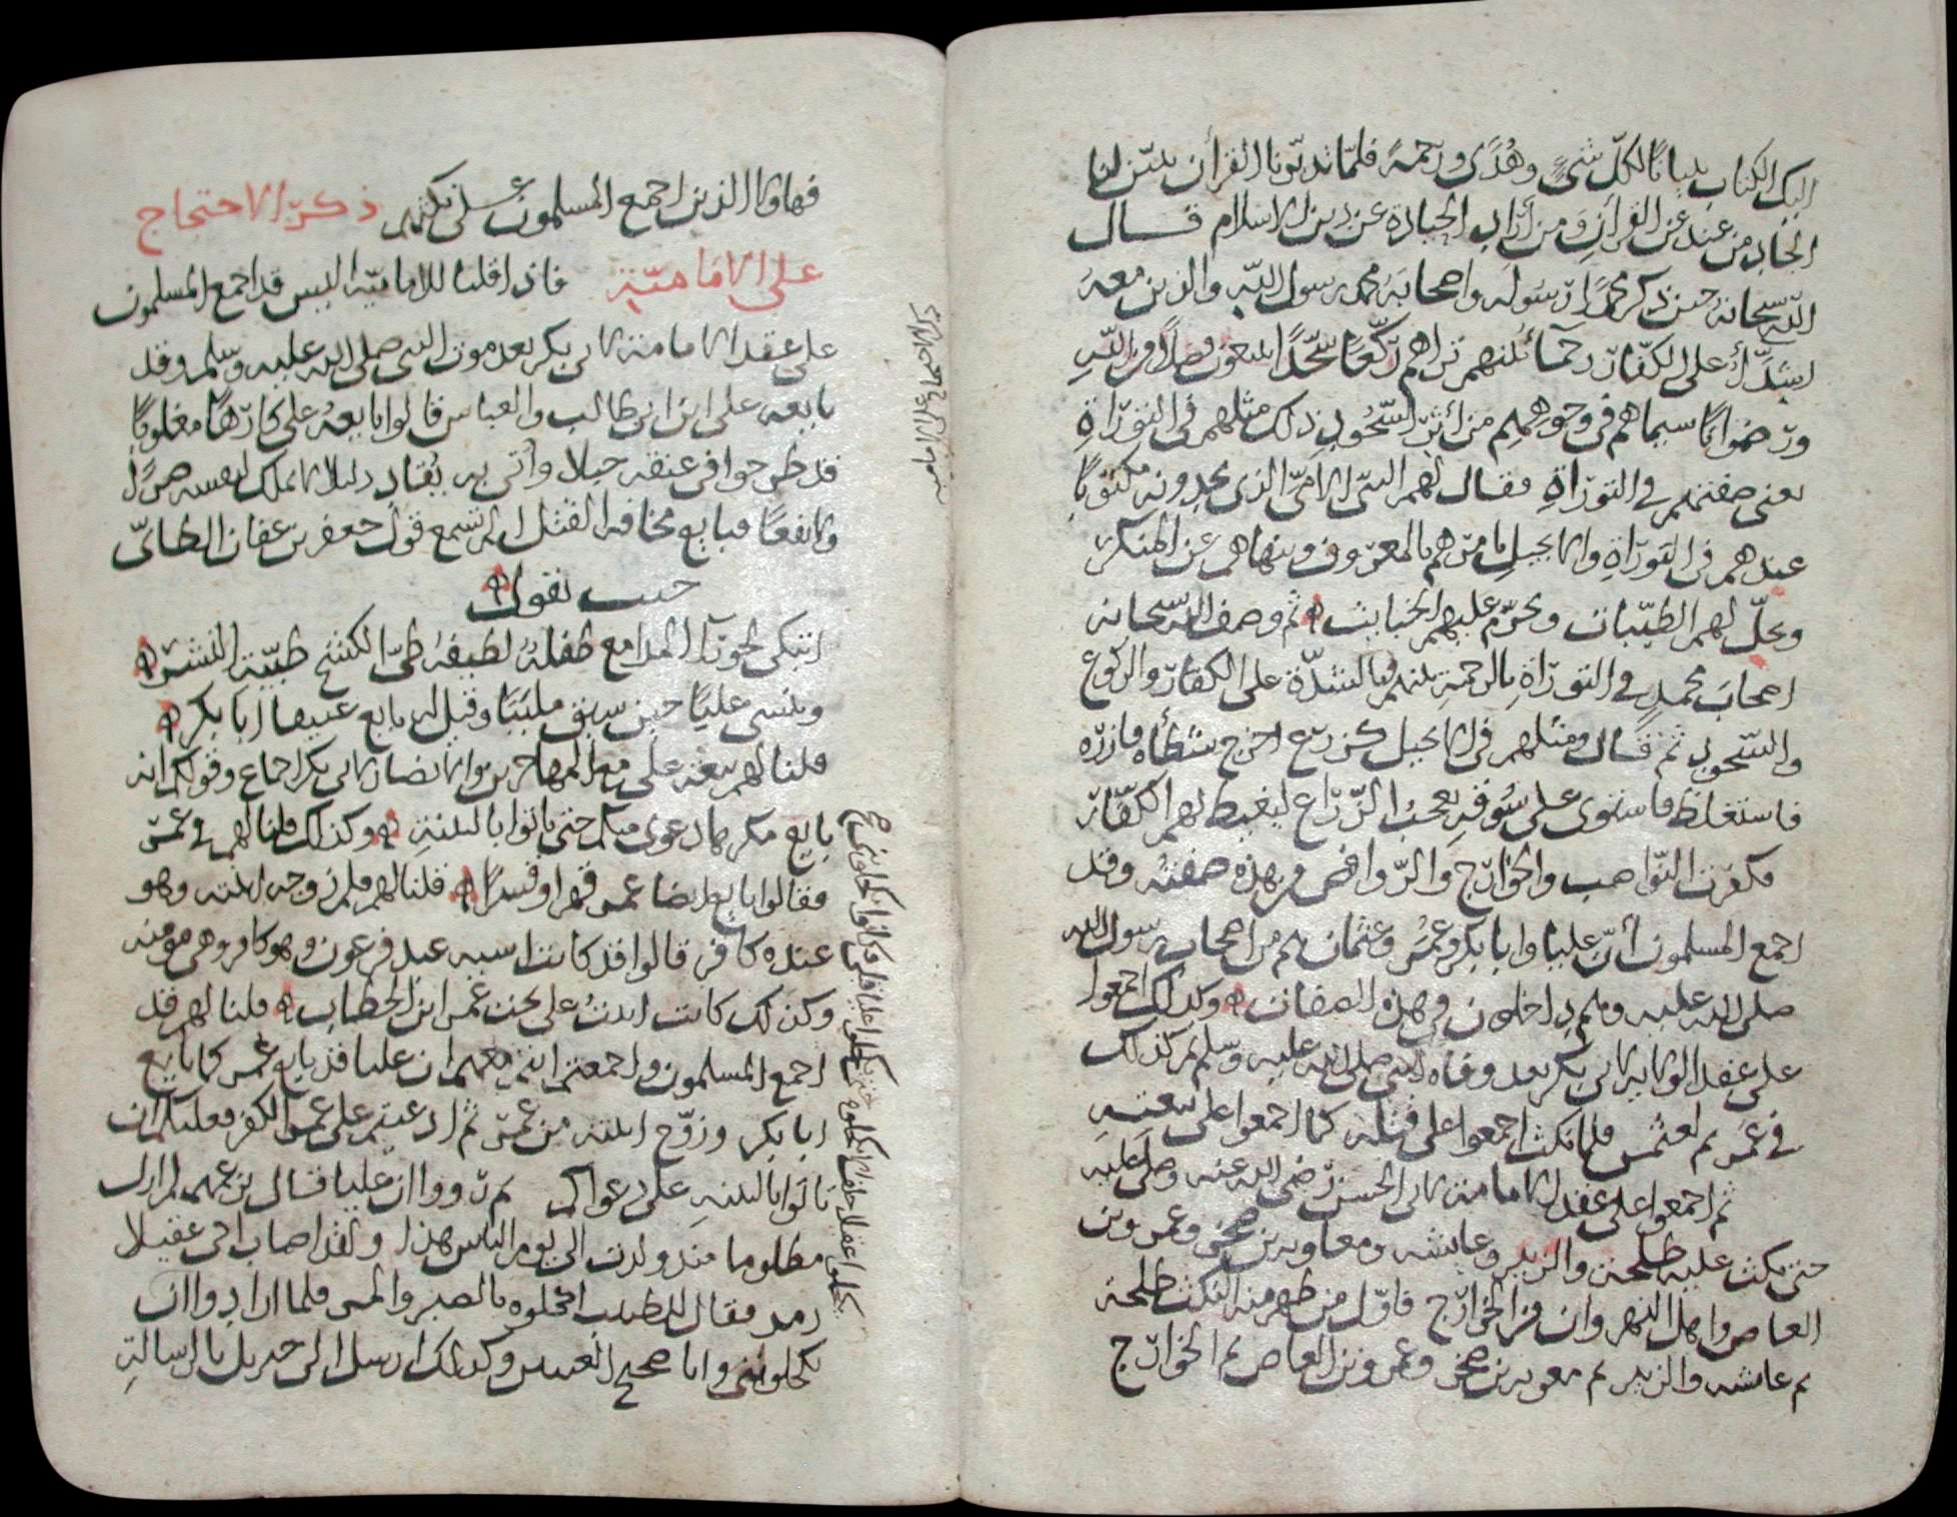 اليك الكتاب تبيانا لكلّ شىءٍ وهُدًى ورحمةً فلمّا تدبّرنا القرآن تبيّن لنا
الحايد من عند عن القرآنِ ومن أراد الحيادة عن دين الاسلام قال
اللّه سبحانه حين ذكر محمدًا رسوله واصحابَه محمد رسول اللّه والذين معه
اشدّآء على الكفّار رحمآء بينهم تراهم ركّعًا سجّدًا يبتغون فضلاً من اللّهِ
ورضوانًا سيماهم فى وجوههم من أثر السّجُودِ ذلك مثلهم فى التورَاةِ
يعنى صفتهم في التورَاةِ فقال لهم النبى الامّىّ الذى يجدونه مكتوبًا
عندهم فى التورَاةِ والانجيلِ يامرهم بالمعروف وينهاهم عن المنكر
ويحلّ لهم الطيّبات ويحرّم عليهم الخبايث ثم وصف اللّه سبحانه
اصحابَ محمدٍ في التورَاة بالرحمةِ بينهم وبالشدّة على الكفار والركوع
والسّجودِ ثم قال ومثلهم فى الانجيل كزرع اخرج شطأه فازره
فاستغلظ فاستوى على سُوقهِ يعجبُ الزّرّاع ليغيظ بهم الكفّار
فكفرت النّواصب والخوارج والرّوافض من هذه صفته وقد
اجمع المسلمون أنّ عليا وابا بكر وعمر وعثمان هم من اصحاب رسول الله
صلى الله عليه وهم داخلون في هذه الصفات وكذلك اجمعوا
على عقد الولاية لابى بكر بعد وفاه النبى صلى الله عليه وسلم ثم كذلك
في عمر ثم لعثمن فلما نكث اجمعوا على قتله كما اجمعوا على بيعتهِ
ثم اجمعوا على عقد الامامة لابى الحسن رضى الله عنه وصلى عليه
حتى نكث عليه طلحة والزبير وعايشه ومعاوية بن صخر وعمرو بن
العاص واهل النهروان من الخوارج فاوّل من ظهر منه النكث طلحة
ثم عايشه والزبير ثم معويه بن صخر وعمرو بن العاص ثم الخوارج
فهاولا الذين اجمع المسلمون على نكثهم ذكر الاحتجاج
على الاماميّة فاذا قلنا للاماميّة اليس قد اجمع المسلمون
على عقد الامامة لابى بكر بعد موت النبى صلى الله عليه وسلم وقد
بايعه على ابن ابى طالب والعباس قالوا بايعهُ على كارهًا مغلوبًا
قد طرحوا فى عنقه حبلا وأتى به يُقاد ذليلا لا يملك لنفسه ضرًا
ولا نفعًا فبايع مخافة القتل الم تسمع قول جعفر بن عفان الطائىّ
حيث يقول
اتبكى لحورآ المدامع طفلةٌ لطيفة طىّ الكشح طيّبة النشر
وتنسى عليًا حين سيق ملبّبًا وقيل له بايع عتيقا ابا بكر
قلنا لهم بيعة على مع المهاجرين والانصار لابى بكر اجماع وقولكم انه
بايع مكرها دعوى منكم حتى ياتوا بالبينةِ وكذلك قلنا لهم فى عمر
فقالوا بايع ايضا عمر قهرا وقسرًا قلنا لهم فلم زوجه ابنته وهو
عنده كافر قالوا قد كانت اسيه عبد فرعون وهو كافر وهى مومنه
وكذلك كانت ابنتُ على تحت عمر ابن الخطاب قلنا لهم قد
اجمع المسلمون واجمعتم انتم معهم ان عليا قد بايع عمر كما بايع
ابا بكر وزوّج ابنته من عمر ثم ادعيتم على عمر الكفر فعليكم ان
تاتوا بالبينهِ على دعواكم ثم رووا ان عليا قال بن عمهم لم ازل
مظلوما منذ ولدت الى يوم الناس هذا ولقد اصاب اخى عقيلا
رمد فقال للطبيب اكحلوه بالصبر والمر فلما ارادوا ان
يكحلوننى وانا صحيح العينين وكذلك ارسل الى جبريل بالرسالةِ
ذكر الاحتجاج على الاماميه